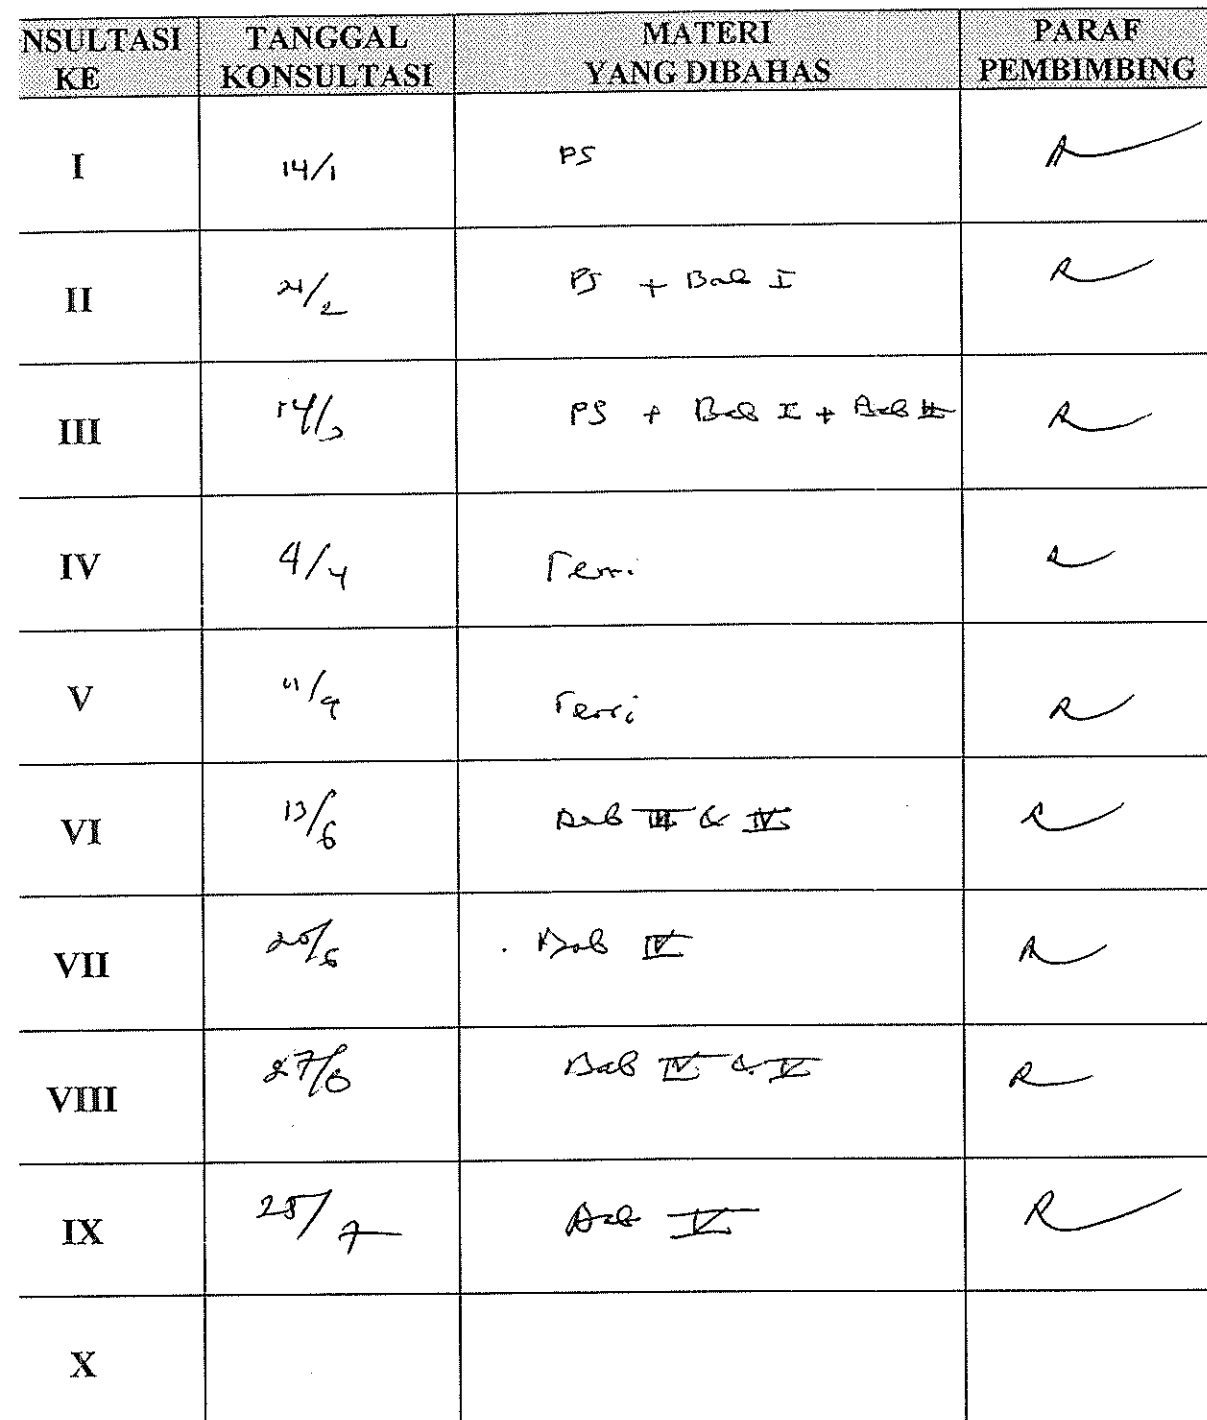 NSULTASI KE TANGGAL KONSULTASI MATERI YANG DIBAHAS PARAF PEMBIMBING
I 14/1 PS
II 21/2 PS + Bab I
III 14/3 PS + Bab I + Bab II
IV 4/4
V
VI 13/6 Bab III & IV
VII 20/6 Bab IV
VIII 27/6 Bab IV & V
IX 25/7 Bab V
X